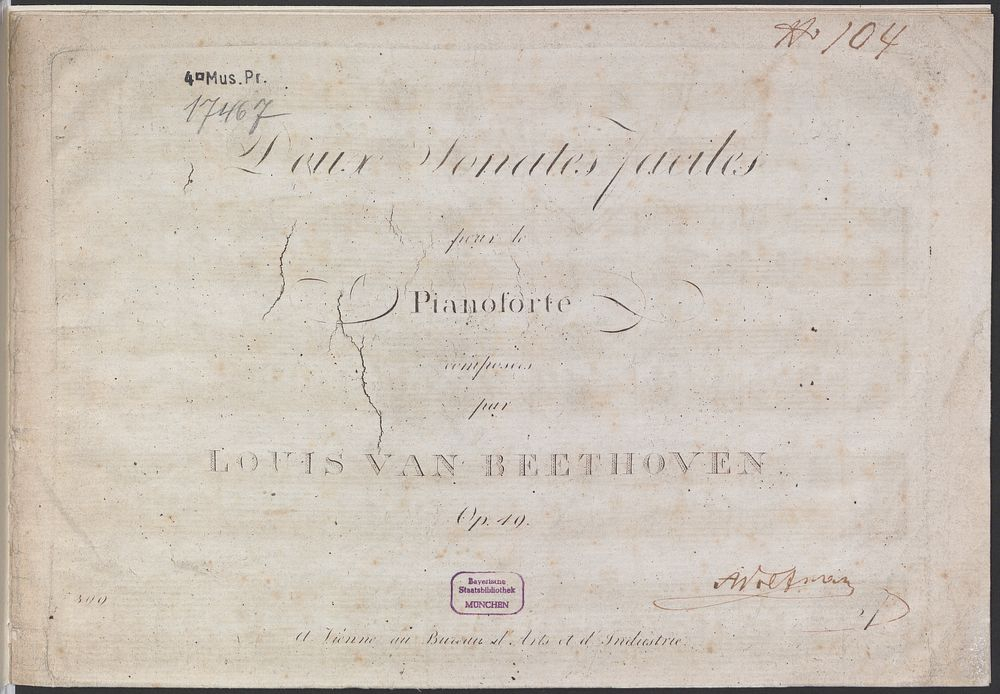 No 104
4°Mus.Pr.
17467
Deux Sonates faciles
pour le
Pianoforte
composées
par
LOUIS VAN BEETHOVEN.
Op. 49.
Bayerische
Staatsbibliothek
MÜNCHEN
A Vienne au Bureau d'Arts et d'Industrie.